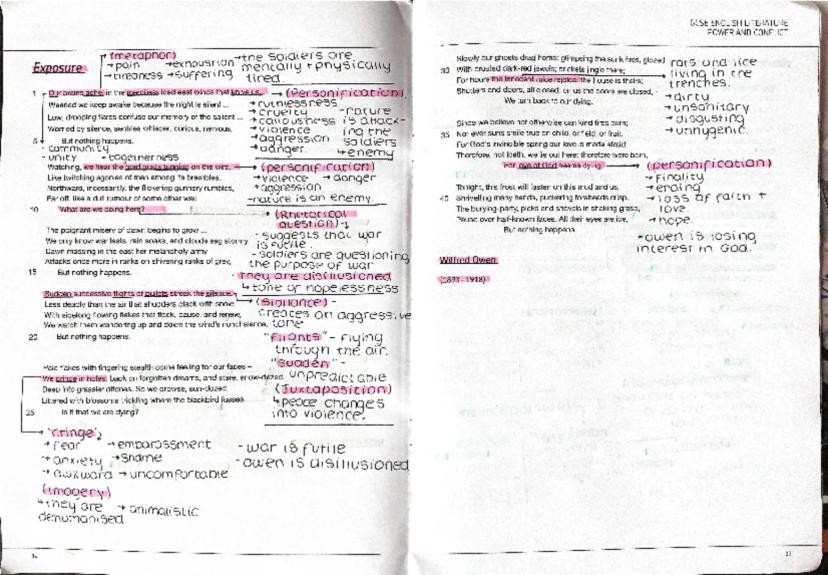 GCSE ENGLISH LITERATURE
POWER AND CONFLICT
Exposure
(metaphor)
→pain →exhaustion
→tiredness →suffering
→the soldiers are
mentally + physically
tired.
1 Our brains ache, in the merciless iced east winds that knive us...
Wearied we keep awake because the night is silent ...
Low, drooping flares confuse our memory of the salient ...
Worried by silence, sentries whisper, curious, nervous,
5 But nothing happens.
→(Personification)
→ruthlessness
→cruelty
→callousness
→violence
→aggression
→danger.
-nature
is attack-
ing the
soldiers
↳enemy
- community
- unity - togetherness
Watching, we hear the mad gusts tugging on the wire,
Like twitching agonies of men among its brambles.
Northward, incessantly, the flickering gunnery rumbles,
Far off, like a dull rumour of some other war.
10 What are we doing here?
→(personification)
→violence →danger
→aggression
-nature is an enemy.
→(Rhetorical
question)
- suggests that war
is futile.
- soldiers are questioning
the purpose of war
They are disillusioned
↳tone of hopelessness
The poignant misery of dawn begins to grow ...
We only know war lasts, rain soaks, and clouds sag stormy.
Dawn massing in the east her melancholy army
Attacks once more in ranks on shivering ranks of grey,
15 But nothing happens.
Sudden successive flights of bullets streak the silence.
Less deadly than the air that shudders black with snow,
With sidelong flowing flakes that flock, pause, and renew,
We watch them wandering up and down the wind's nonchalance,
20 But nothing happens.
→(sibilance) -
creates an aggressive
tone
"flights" - flying
through the air.
"sudden" -
unpredictable
(Juxtaposition)
↳peace changes
into violence.
Pale flakes with fingering stealth come feeling for our faces –
We cringe in holes, back on forgotten dreams, and stare, snow-dazed,
Deep into grassier ditches. So we drowse, sun-dozed,
Littered with blossoms trickling where the blackbird fusses.
25 Is it that we are dying?
→'cringe'
→fear →embarassment
→anxiety →shame
→awkward →uncomfortable
- war is futile
- owen is disillusioned
(imagery)
↳they are →animalistic
dehumanised
Slowly our ghosts drag home: glimpsing the sunk fires, glozed
30 With crusted dark-red jewels; crickets jingle there;
For hours the innocent mice rejoice: the house is theirs;
Shutters and doors, all closed: on us the doors are closed, –
We turn back to our dying.
rats and lice
living in the
trenches.
→dirty
→unsanitary
→disgusting
→unhygenic.
Since we believe not otherwise can kind fires burn;
35 Nor ever suns smile true on child, or field, or fruit.
For God's invincible spring our love is made afraid;
Therefore, not loath, we lie out here; therefore were born,
For love of God seems dying.
→(personification)
→finality
→ending
→loss of faith +
love
→hope.
-owen is losing
interest in God.
Tonight, this frost will fasten on this mud and us,
40 Shrivelling many hands, puckering foreheads crisp.
The burying-party, picks and shovels in shaking grasp,
Pause over half-known faces. All their eyes are ice,
But nothing happens.
Wilfred Owen
(1893 - 1918)